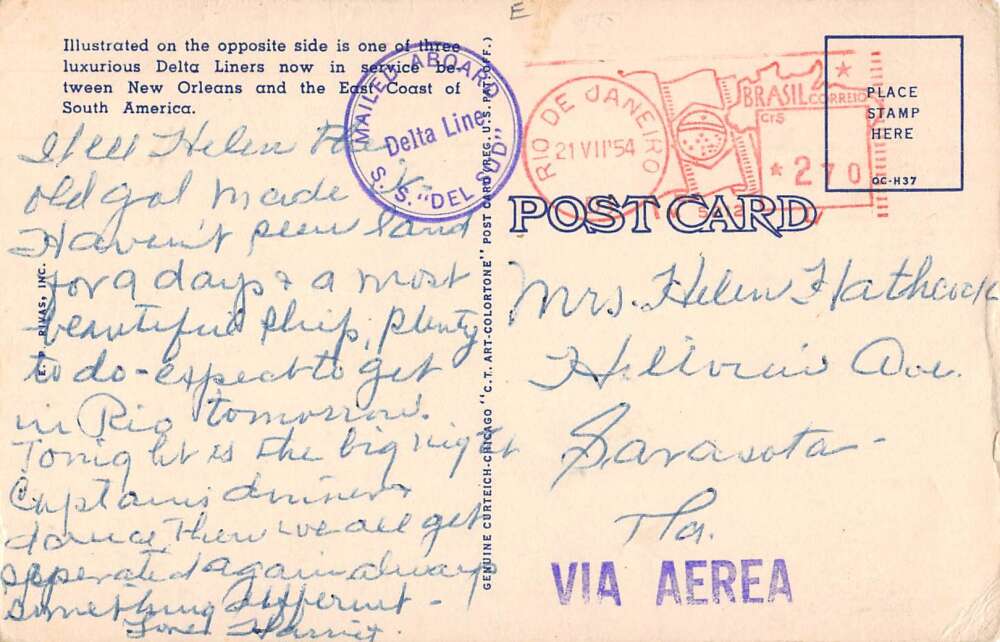 Illustrated on the opposite side is one of three
luxurious Delta Liners now in service be-
tween New Orleans and the East Coast of
South America.
E
MAILED ABOARD
Delta Line
S. S. "DEL SUD"
RIO DE JANEIRO
21 VII '54
BRASIL CORREIO
CrS
*270
PLACE
STAMP
HERE
OC-H37
POST CARD
Well Helen the
old gal made it.
Haven't seen land
for 9 days & a most
beautiful ship, plenty
to do - expect to get
in Rio tomorrow.
Tonight is the big night
Captains dinner &
dance, then we all get
seperated again always
something different -
Love Harriet.
E. F. RIMAS, INC.
GENUINE CURTEICH-CHICAGO "C.T. ART-COLORTONE" POST CARD (REG. U.S. PAT. OFF.)
Mrs. Helen Hathcock
Ave.
Sarasota -
Fla.
VIA AEREA